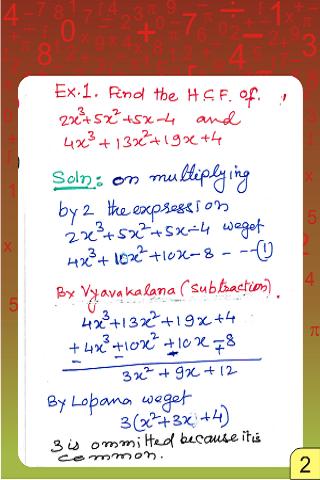 Ex.1. Find the H.C.F. of.
2x³+5x²+5x-4 and
4x³+13x²+19x+4
Soln: on multiplying
by 2 the expression
2x³+5x²+5x-4 we get
4x³+10x²+10x-8 ---①
By Vyavakalana (subtraction).
4x³+13x²+19x+4
+4x³+10x²+10x-8
- - - +
3x²+9x+12
By Lopana we get
3(x²+3x+4)
3 is ommitted because it is
common.
2